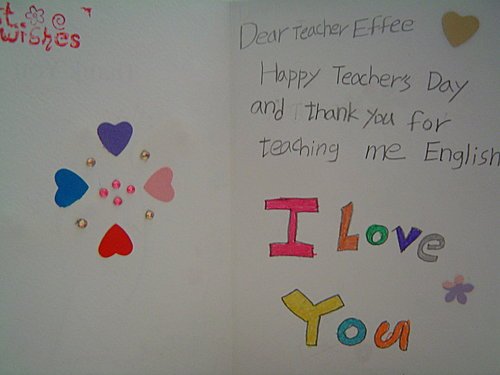 wishes
Dear Teacher Effee
Happy Teacher's Day
and thank you for
teaching me English
I Love
You